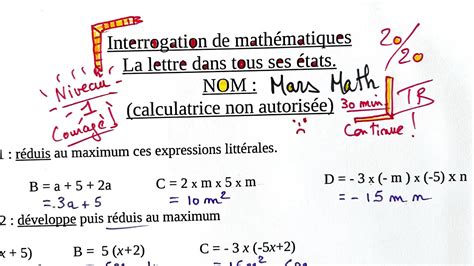 Interrogation de mathématiques
20/20
La lettre dans tous ses états.
Niveau
1
Courage !
NOM : Mars Math
(calculatrice non autorisée)
30 min
TB
Continue !
1 : réduis au maximum ces expressions littérales.
B = a + 5 + 2a
C = 2 x m x 5 x m
D = - 3 x (- m ) x (-5) x n
= 3a + 5
= 10 m²
= - 15 m n
2 : développe puis réduis au maximum
x + 5)
B = 5 (x+2)
C = - 3 x (-5x+2)